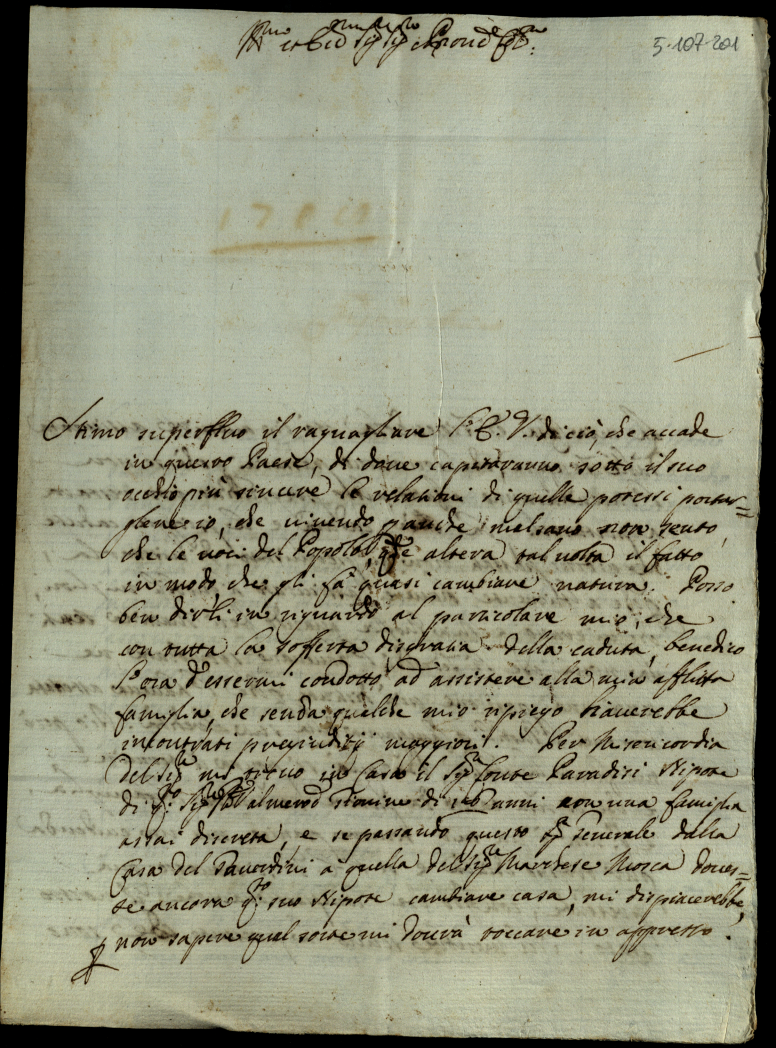 5-107-201
Stimo superfluo il raguagliare l'E. V. di ciò, che accade
in questo Paese, di dove capitaranno sotto il suo
occhio più sincere le relationi di quelle potessi portar=
gliene io, che vivendo mal sano non sento,
che le voci del Popolo, che altera tal volta il fatto
in modo che gli fà quasi cambiare natura. Posso
ben dirli in riguardo al particolare mio, che
con tutta la sofferta disgratia della caduta, benedico
l'ora d'essermi condotto ad assistere alla mia afflitta
famiglia, che senza qualche mio ripiego haverebbe
incontrati pregiuditij maggiori. Per Misericordia
del Sig.re mi trovo in Casa il Sig.r Conte Paradisi Nipote
di anni con una famiglia
assai discreta, e se passando questo Sig.r Generale dalla
Casa del a quella del Sig.r Marchese Mosca doves=
se ancora q.to suo Nipote cambiare casa, mi dispiacerebbe,
non sapere qual sorte mi dovrà toccare in appresso.